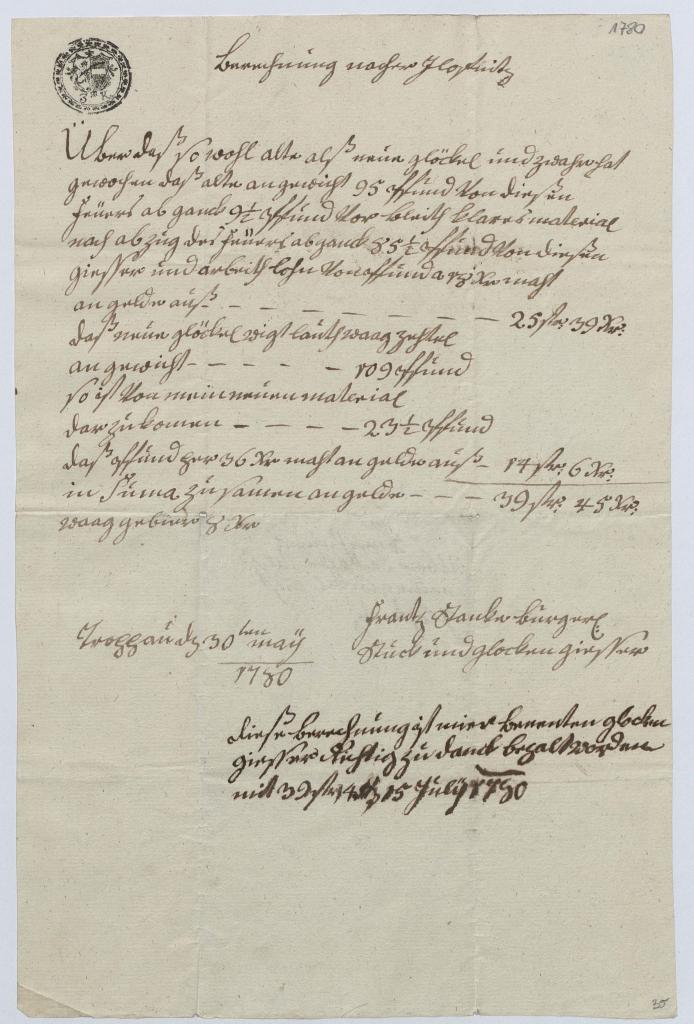 1780
3 K
Berechnung nacher
Über daß so wohl alte alß neüe glöckel und zwahr hat
gewochen daß alte an gewicht 95 pffund Von diesen
Feüers ab ganck 9½ pffund Vor bleith klares material
nach abzug des Feüers ab ganck 85½ pffund Von diesen
giesser und arbeith lohn Von pffund a 18 Xr maht
an gelde auß — — — — — — — 25 flr: 39 Xr:
daß neüe glöckel wigt lauth waag zehtel
an gewicht — — — — — 109 pffund
so ist Von mein neüen material
dar zu komen — — — — 23½ pffund
daß pffund per 36 Xr maht an gelde auß — 14 flr: 6 Xr:
in Suma zu samen an gelde — — — 39 flr: 45 Xr:
waag gebühr 8 Xr
Troppau d 30ten maÿ
1780
Frantz Stanke bürgerl:
Stück und glocken giesser
diese berechnung ist mier benenten glocken
giesser Richtig zu danck bezalt worden
mit 39 flr 15 Julÿ 1780
35